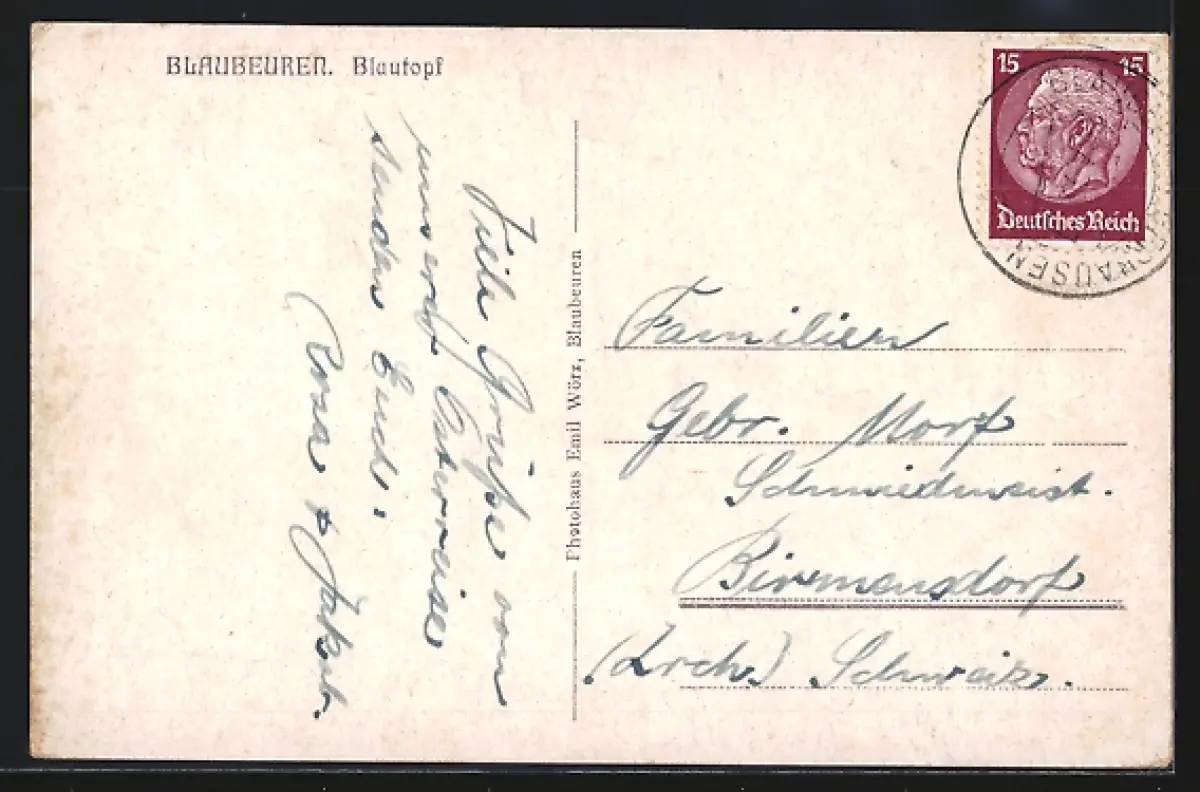 BLAUBEUREN. Blautopf
Viele Grüße von
unserer Osterreise
senden Euch,
Rosa & Jakob.
Photohaus Emil Wörz, Blaubeuren
15 15
Deutsches Reich
Familien
Gebr. Morf
Birmensdorf
(Zrch.) Schweiz.